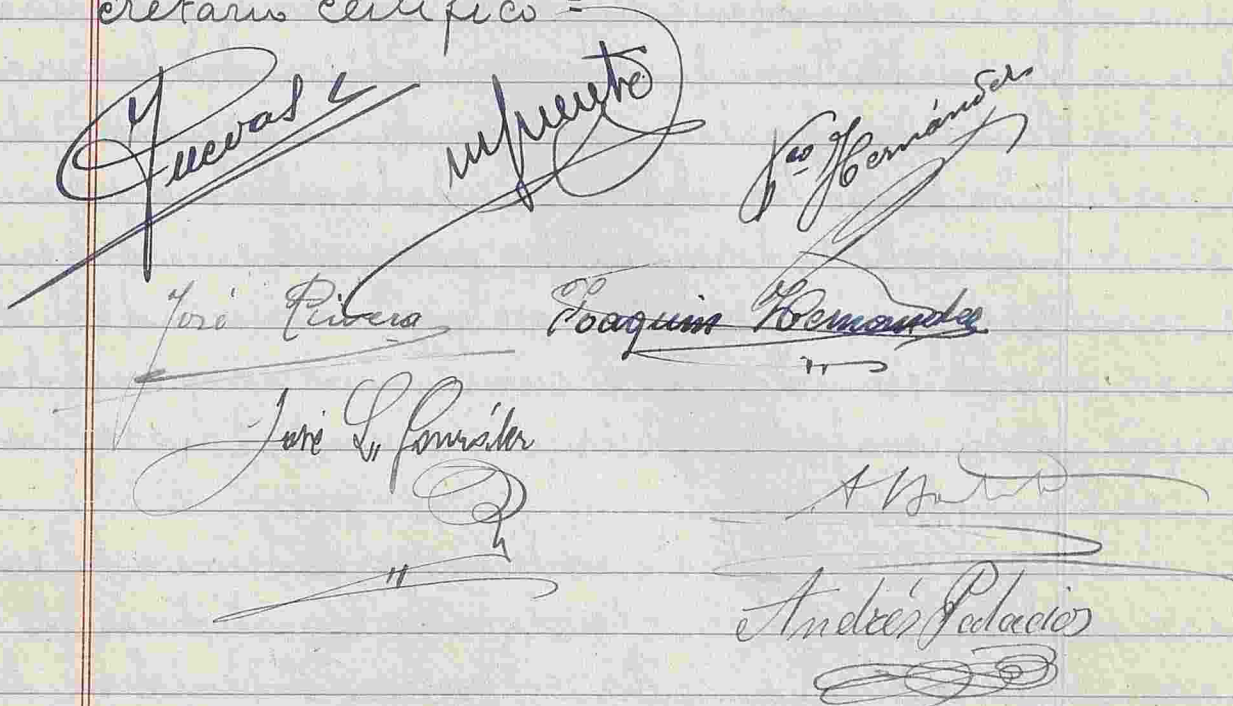 cretario certifico =
Fco Hernández
José Rivera
Joaquin Hernandez
José L. González
Andrés Palacios